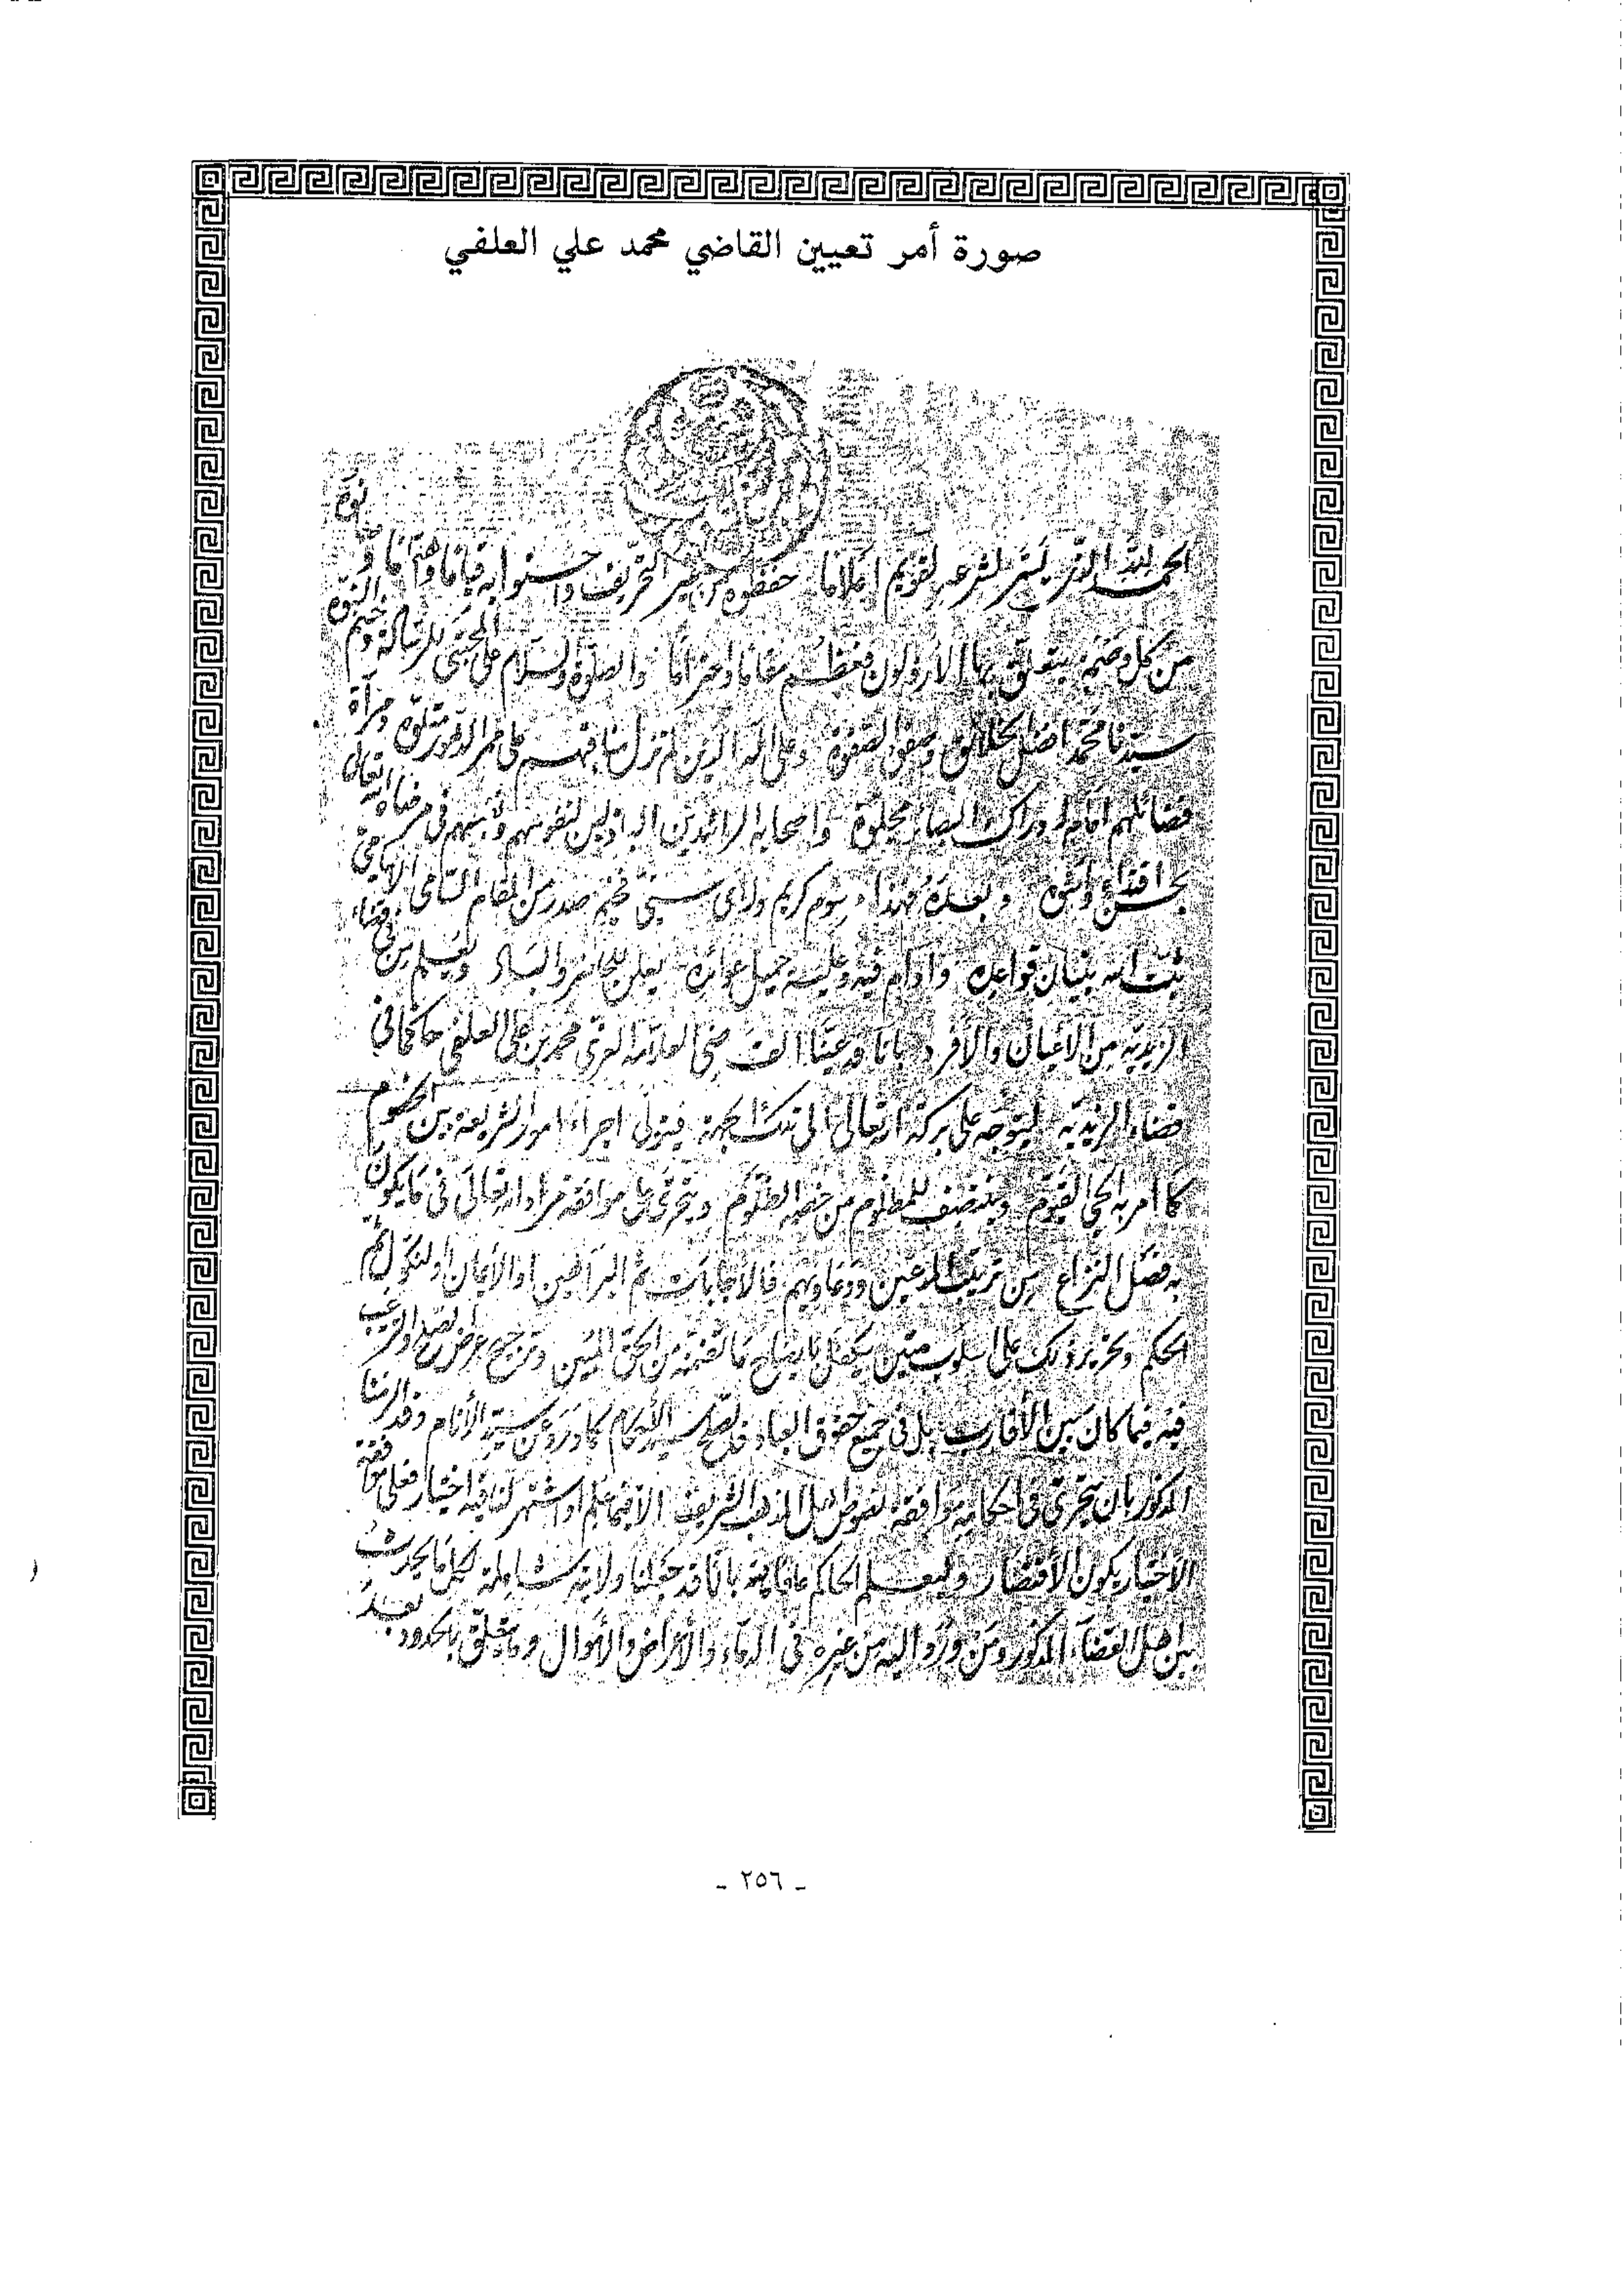 صورة أمر تعيين القاضي محمد علي العلفي
الحمد لله الذي يسر لشرعه القويم أعلاما حفظوه من التحريف وأحسنوا به قياما
من كل وضمة يتعلق بها الأرذلون فعظم مقاما واحتراما والصلوة والسلام على المجتبى للرسالة وختم النبوة
سيدنا محمد افضل الخلائق وصفوة الصفوة وعلى اله الذين لم تزل مناقبهم على ممر الدهور متلوة ومرآة
فضائلهم أمام ادراك البصائر مجلوة واصحابه الراشدين الباذلين لنفوسهم في مرضاة الله تعالى
وبعد فهذا مرسوم كريم ورأي فخيم صدر من المقام السامي الإمامي
ثبت الله بنيان قواعده وادام فيه وعليه جميل عوائده يعلن للحاضر والباد وليعلم من في قضاء
الزيدية من الأعيان والأفراد بأنا قد عينا القاضي العلامة العزي محمد بن علي العلفي حاكما في
قضاء الزيدية ليتوجه على بركة الله تعالى الى تلك الجهة فيتولى اجراء امور الشريعة بين الخصوم
كما امر به الحي القيوم وينتصف للمظلوم من خصمه الظلوم ويتحرى على موافقة مراد الله تعالى في ما يكون
به فصل النزاع من ترتيب المدعين ودعاويهم فالاجابات ثم البراهين او الأيمان او النكول ثم
الحكم وتحرير ذلك على اسلوب متين يتكفل بايضاح ما تضمنه من الحق المبين وترجيح عرض الصلح والترغيب
فيه فيما كان بين الأقارب بل في جميع حقوق العباد فالصلح سيد الأحكام كما ورد عن سيد الأنام وقد ألزمنا
المذكور بان يتحرى في احكامه موافقة لنصوص اهل المذهب الشريف الا فيما علم او اشتهر لنا فيه اختيار فعلى موافقة
الاختيار يكون الاقتصار وليعلم الحاكم عافاه الله بأنا قد جعلنا ولايته شاملة لكل ما يحدث
بين اهل القضاء المذكور ومن ورد اليه من غيره في الدماء والأعراض والأموال وما يتعلق بالحدود بعد
- ٢٥٦ -